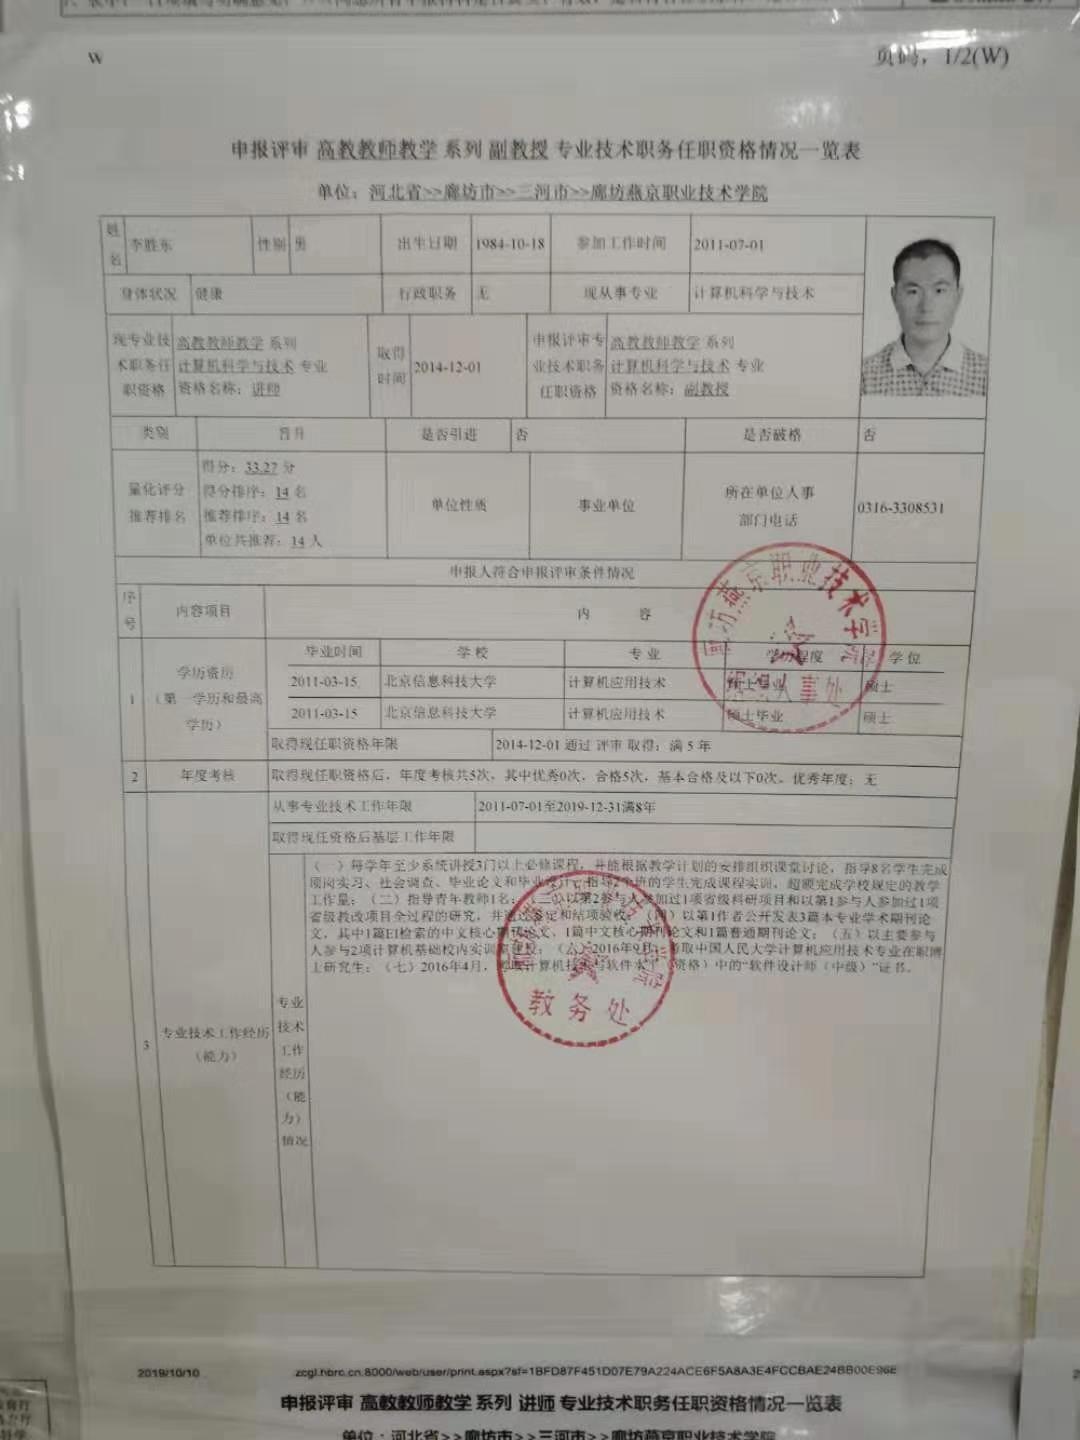 W
页码，1/2(W)
申报评审 高教教师教学 系列 副教授 专业技术职务任职资格情况一览表
单位：河北省>>廊坊市>>三河市>>廊坊燕京职业技术学院
姓名 李胜东 性别 男 出生日期 1984-10-18 参加工作时间 2011-07-01
身体状况 健康 行政职务 无 现从事专业 计算机科学与技术
现专业技术职务任职资格 高教教师教学 系列 计算机科学与技术 专业 资格名称：讲师 取得时间 2014-12-01 申报评审专业技术职务任职资格 高教教师教学 系列 计算机科学与技术 专业 资格名称：副教授
类别 晋升 是否引进 否 是否破格 否
量化评分推荐排名
得分：33.27 分
得分排序：14 名
推荐排序：14 名
单位共推荐：14 人
单位性质 事业单位 所在单位人事部门电话 0316-3308531
申报人符合申报评审条件情况
序号 内容项目 内 容
1 学历资历（第一学历和最高学历）
毕业时间 学 校 专 业 学历程度 学 位
2011-03-15 北京信息科技大学 计算机应用技术 硕士毕业 硕士
2011-03-15 北京信息科技大学 计算机应用技术 硕士毕业 硕士
取得现任职资格年限 2014-12-01 通过 评审 取得；满 5 年
2 年度考核 取得现任职资格后，年度考核共5次，其中优秀0次，合格5次，基本合格及以下0次。优秀年度：无
3 专业技术工作经历（能力）
从事专业技术工作年限 2011-07-01至2019-12-31满8年
取得现任资格后基层工作年限
专业技术工作经历（能力）情况
（一）每学年至少系统讲授3门以上必修课程，并能根据教学计划的安排组织课堂讨论，指导8名学生完成
顶岗实习、社会调查、毕业论文和毕业设计，指导2个班的学生完成课程实训，超额完成学校规定的教学
工作量；（二）指导青年教师1名；（三）以第2参与人参加过1项省级科研项目和以第1参与人参加过1项
省级教改项目全过程的研究，并通过鉴定和结项验收；（四）以第1作者公开发表3篇本专业学术期刊论
文，其中1篇EI检索的中文核心期刊论文、1篇中文核心期刊论文和1篇普通期刊论文；（五）以主要参与
人参与2项计算机基础校内实训室建设；（六）2016年9月，考取中国人民大学计算机应用技术专业在职博
士研究生；（七）2016年4月，计算机技术与软件水平（资格）中的“软件设计师（中级）”证书。
廊坊燕京职业技术学院 组织人事处
教务处
2019/10/10 zcgl.hbrc.cn:8000/web/user/print.aspx?sf=1BFD87F451D07E79A224ACE6F5A8A3E4FCCBAE24BB00E96E
申报评审 高教教师教学 系列 讲师 专业技术职务任职资格情况一览表
单位：河北省>>廊坊市>>三河市>>廊坊燕京职业技术学院